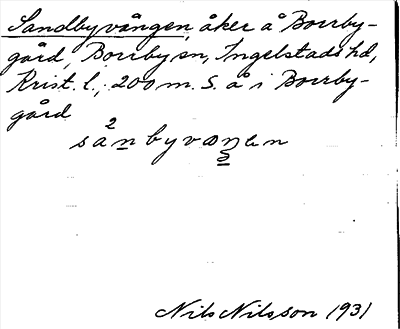 Sandbyvången, åker å Borrby-
gård, Borrby sn, Ingelstads hd,
Krist. l.; 200 m. S. å i Borrby-
gård
Nils Nilsson 1931